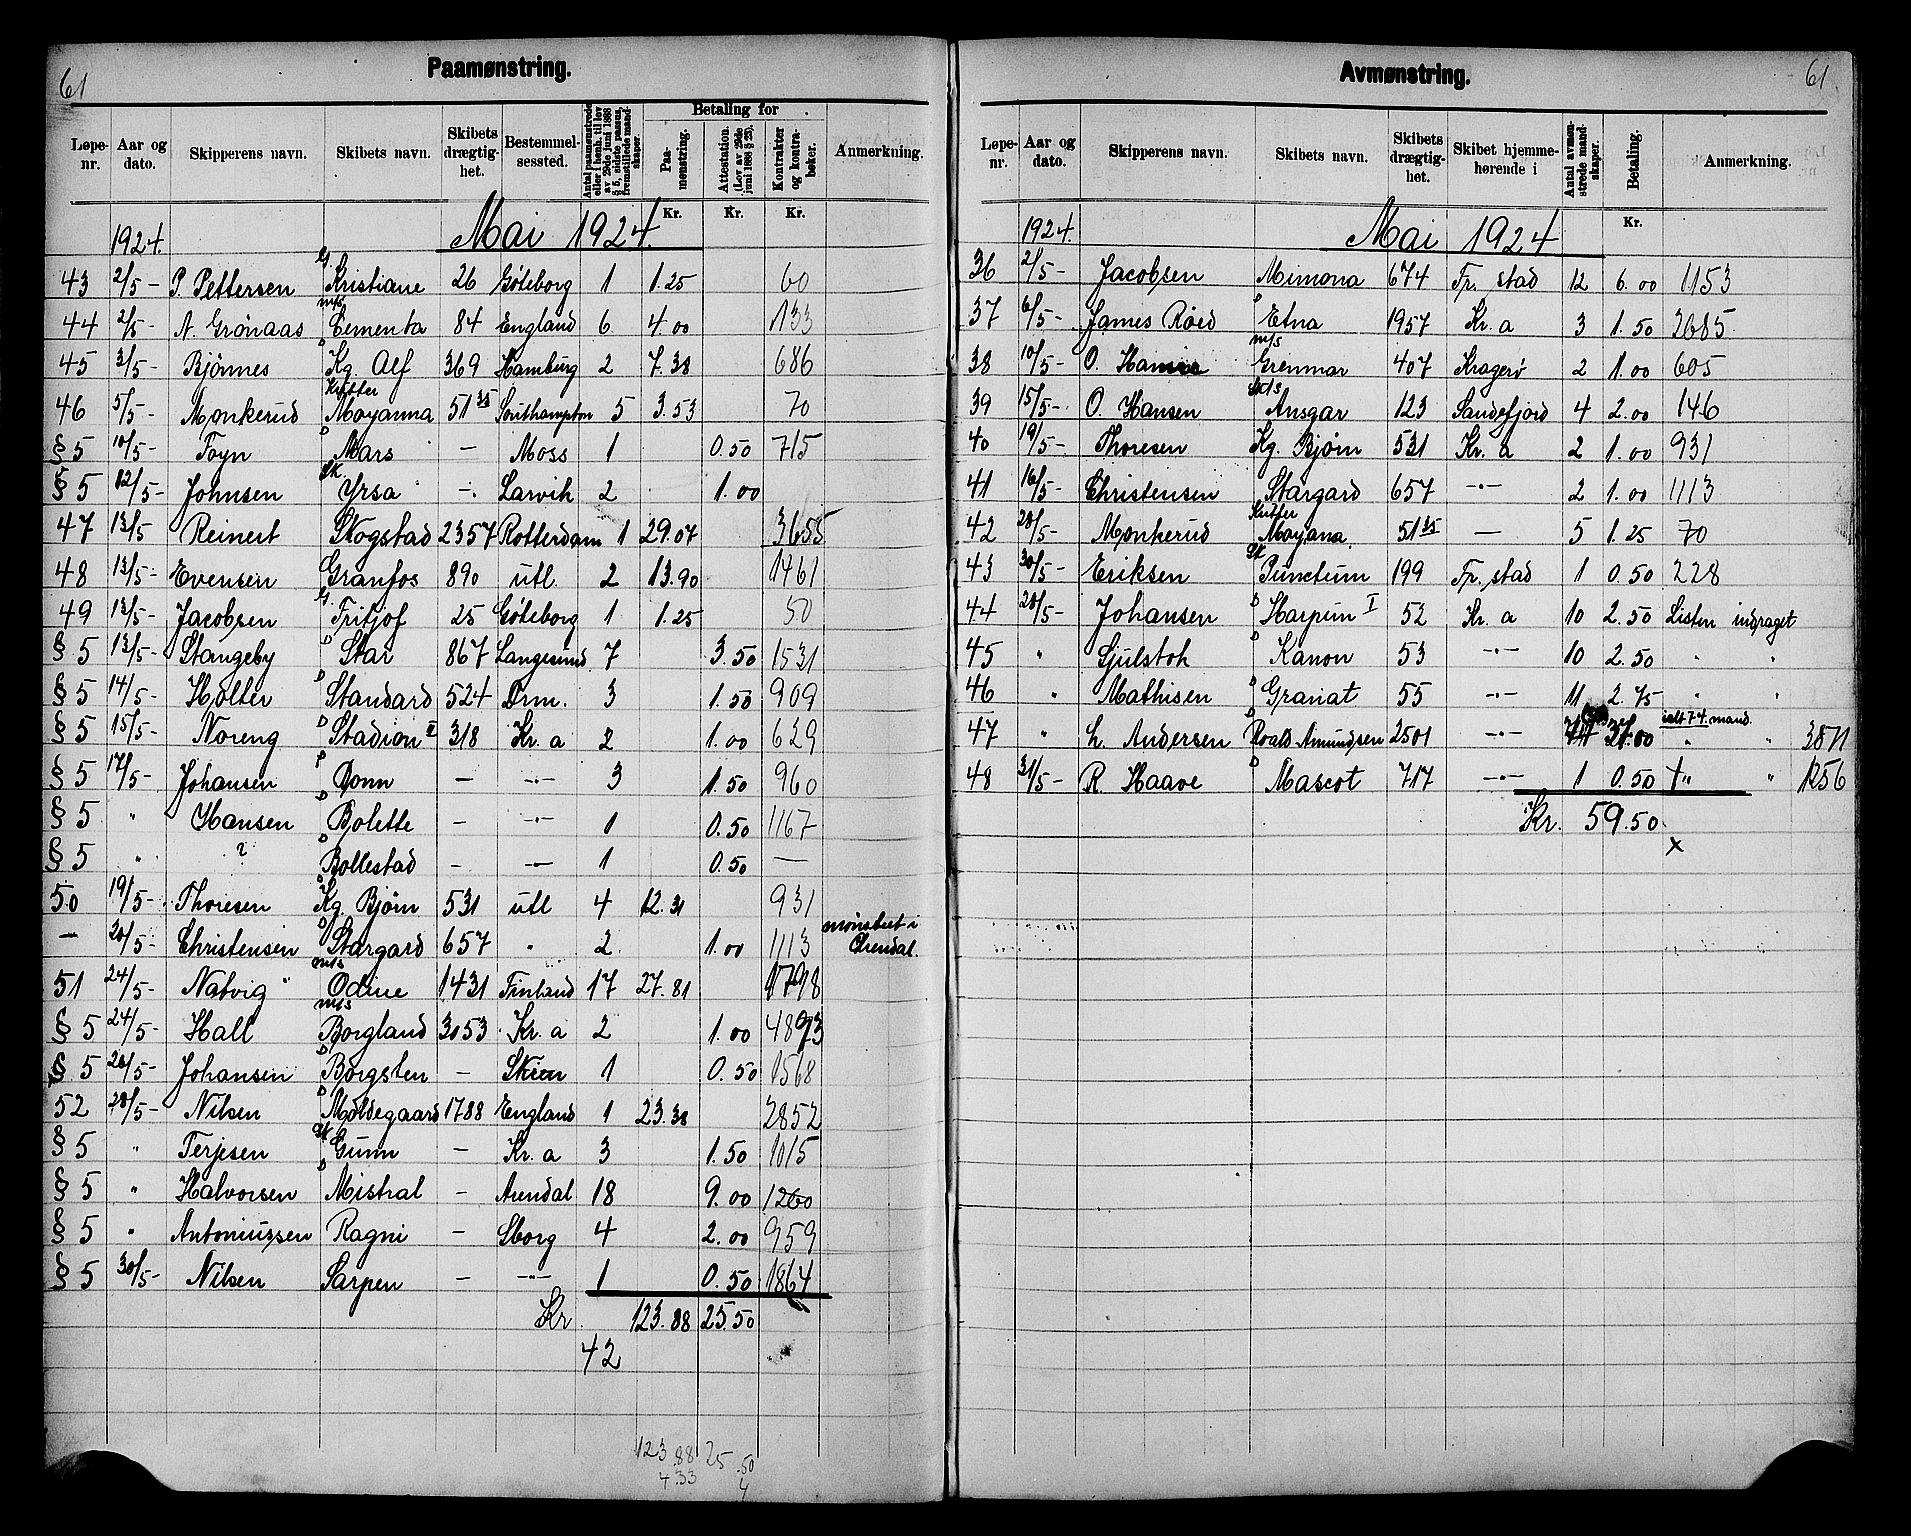 61
Paamønstring.
Løpe-nr. | Aar og dato. | Skipperens navn. | Skibets navn. | Skibets drægtig-het. | Bestemmel-sessted. | Antal paamønstrede eller i henh. til lov av 29de juni 1888 § 5, sidste passus, fremstillede mand-skaper. | Betaling for | Paa-mønstring. | Attestation. (Lov av 29de juni 1888 § 25). | Kontrakter og kontra-bøker. | Anmerkning.
Kr. | Kr. | Kr.
1924. | Mai 1924.
43 | 2/5- | P. Pettersen | G. Kristiane | 26 | Göteborg | 1 | 1.25 | 60
44 | 2/5- | N. Grønaas | m/s Cementa | 84 | England | 6 | 4.00 | 133
45 | 3/5- | Bjönnes | D Kg. Alf | 369 | Hamburg | 2 | 7.38 | 686
46 | 5/5- | Monkerud | Kutter Moyanna | 51 35 | Southampton | 5 | 3.53 | 70
§ 5 | 10/5- | Foyn | D Mars | — | Moss | 1 | 0.50 | 715
§ 5 | 12/5- | Johnsen | Sk Yrsa | -·- | Larvik | 2 | 1.00
47 | 13/5 | Reinert | Skogstad | 2357 | Rotterdam | 1 | 29.07 | 3655
48 | 13/5- | Evensen | Granfos | 890 | utl. | 2 | 13.90 | 1461
49 | 13/5- | Jacobsen | G. Fritjof | 25 | Göteborg | 1 | 1.25 | 50
§ 5 | 13/5- | Stangeby | D Star | 867 | Langesund | 7 | 3.50 | 1531
§ 5 | 14/5- | Holter | D Standard | 524 | Drm. | 3 | 1.50 | 909
§ 5 | 15/5- | Noreng | D Stadion II | 318 | Kr. a | 2 | 1.00 | 629
§ 5 | 17/5- | Johansen | D Donn | — | -·- | 3 | 1.50 | 960
§ 5 | " | Hansen | D Bolette | — | -·- | 1 | 0.50 | 1167
§ 5 | " | ? | Bollestad | — | -·- | 1 | 0.50 | —
50 | 19/5- | Thoresen | D Kg. Bjørn | 531 | utl | 4 | 12.31 | 931
— | 20/5- | Christensen | D Stargard | 657 | " | 2 | 1.00 | 1113 | mønstret i Arendal.
51 | 24/5- | Natvig | m/s Odine | 1431 | Finland | 17 | 27.81 | 1798
§ 5 | 24/5- | Hall | m/s Borgland | 3053 | Kr. a | 2 | 1.00 | 4893
§ 5 | 28/5- | Johansen | D Borgsten | — | Skien | 1 | 0.50 | 1568
52 | 28/5- | Nilsen | D Moldegaard | 1788 | England | 1 | 23.38 | 2852
§ 5 | " | Terjesen | Sk Gunn | — | Kr. a | 3 | 1.50 | 1015
§ 5 | " | Halvorsen | D Mistral | — | Arendal | 18 | 9.00 | 1260
§ 5 | " | Antoniussen | Ragni | — | Sborg | 4 | 2.00 | 959
§ 5 | 30/5- | Nilsen | Sarpen | — | -"- | 1 | 0.50 | 1864
Kr. 123.88 | 25.50
42
123.88 | 25.50
4.33 | 4
Avmønstring.
61
Løpe-nr. | Aar og dato. | Skipperens navn. | Skibets navn. | Skibets drægtig-het. | Skibet hjemme-hørende i | Antal avmøn-strede mand-skaper. | Betaling. | Anmerkning.
Kr.
1924. | Mai 1924
36 | 2/5- | Jacobsen | Mimona | 674 | Fr. stad | 12 | 6.00 | 1153
37 | 6/5- | James Röed | D Etna | 1957 | Kr. a | 3 | 1.50 | 2685
38 | 10/5- | O. | m/s Grenmar | 407 | Kragerö | 2 | 1.00 | 605
39 | 15/5- | O. Hansen | Ansgar | 123 | Sandefjord | 4 | 2.00 | 146
40 | 19/5- | Thoresen | Kg. Bjørn | 531 | Kr. a | 2 | 1.00 | 931
41 | 16/5- | Christensen | Stargard | 657 | -·- | 2 | 1.00 | 1113
42 | 28/5- | Monkerud | Kutter Moyana | 51 35 | — | 5 | 1.25 | 70
43 | 30/5- | Eriksen | Sk Punctum | 199 | Fr. stad | 1 | 0.50 | 228
44 | 28/5- | Johansen | D Harpun I | 52 | Kr. a | 10 | 2.50 | Listen indraget
45 | " | Sjulstok | D Kanon | 53 | -·- | 10 | 2.50 | " "
46 | " | Mathisen | D Granat | 55 | -·- | 11 | 2.75 | " "
47 | " | L. Andersen | D Roald Amundsen | 2501 | -·- | 37.00 | ialt 74 mand. " " | 3871
48 | 31/5- | R. Haave | D Mascot | 717 | -·- | 1 | 0.50 | + " " | 1256
Kr. 59.50
x